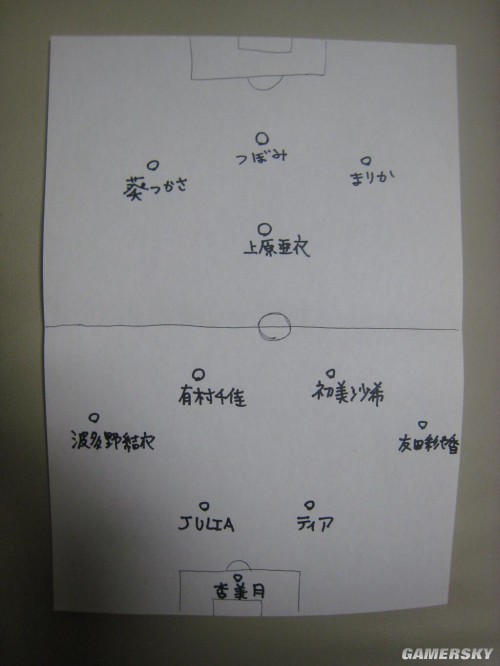 つぼみ
葵つかさ
まりか
上原亜衣
有村千佳
初美沙希
波多野結衣
友田彩也香
JULIA
ティア
杏美月
GAMERSKY